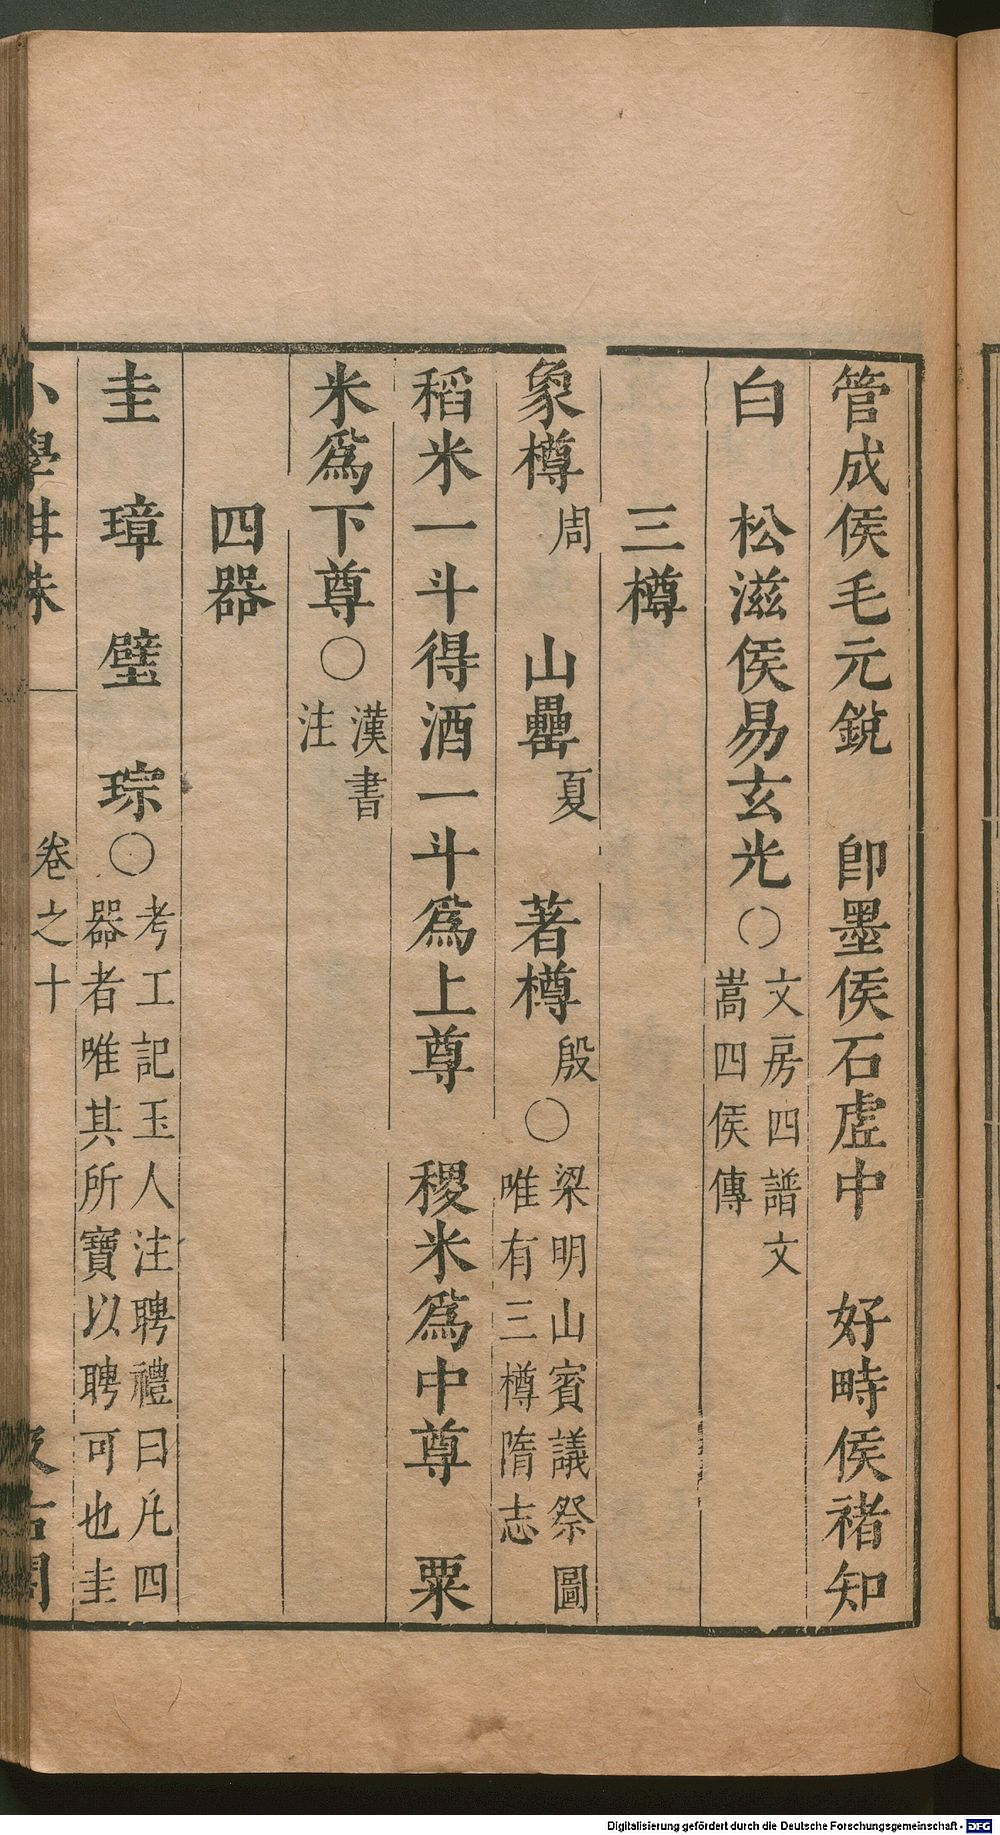 管成侯毛元銳　即墨侯石虛中　好畤侯褚知
白　松滋侯易玄光○文房四譜文
嵩四侯傳
三樽
象樽周　山罍夏　著樽殷○梁明山賓議祭圖
唯有三樽隋志
稻米一斗得酒一斗為上尊　稷米為中尊　粟
米為下尊○漢書
注
四器
圭　璋　璧　琮○考工記玉人注聘禮曰凡四
器者唯其所寶以聘可也圭
小學紺珠　卷之十　汲古閣
Digitalisierung gefördert durch die Deutsche Forschungsgemeinschaft - DFG